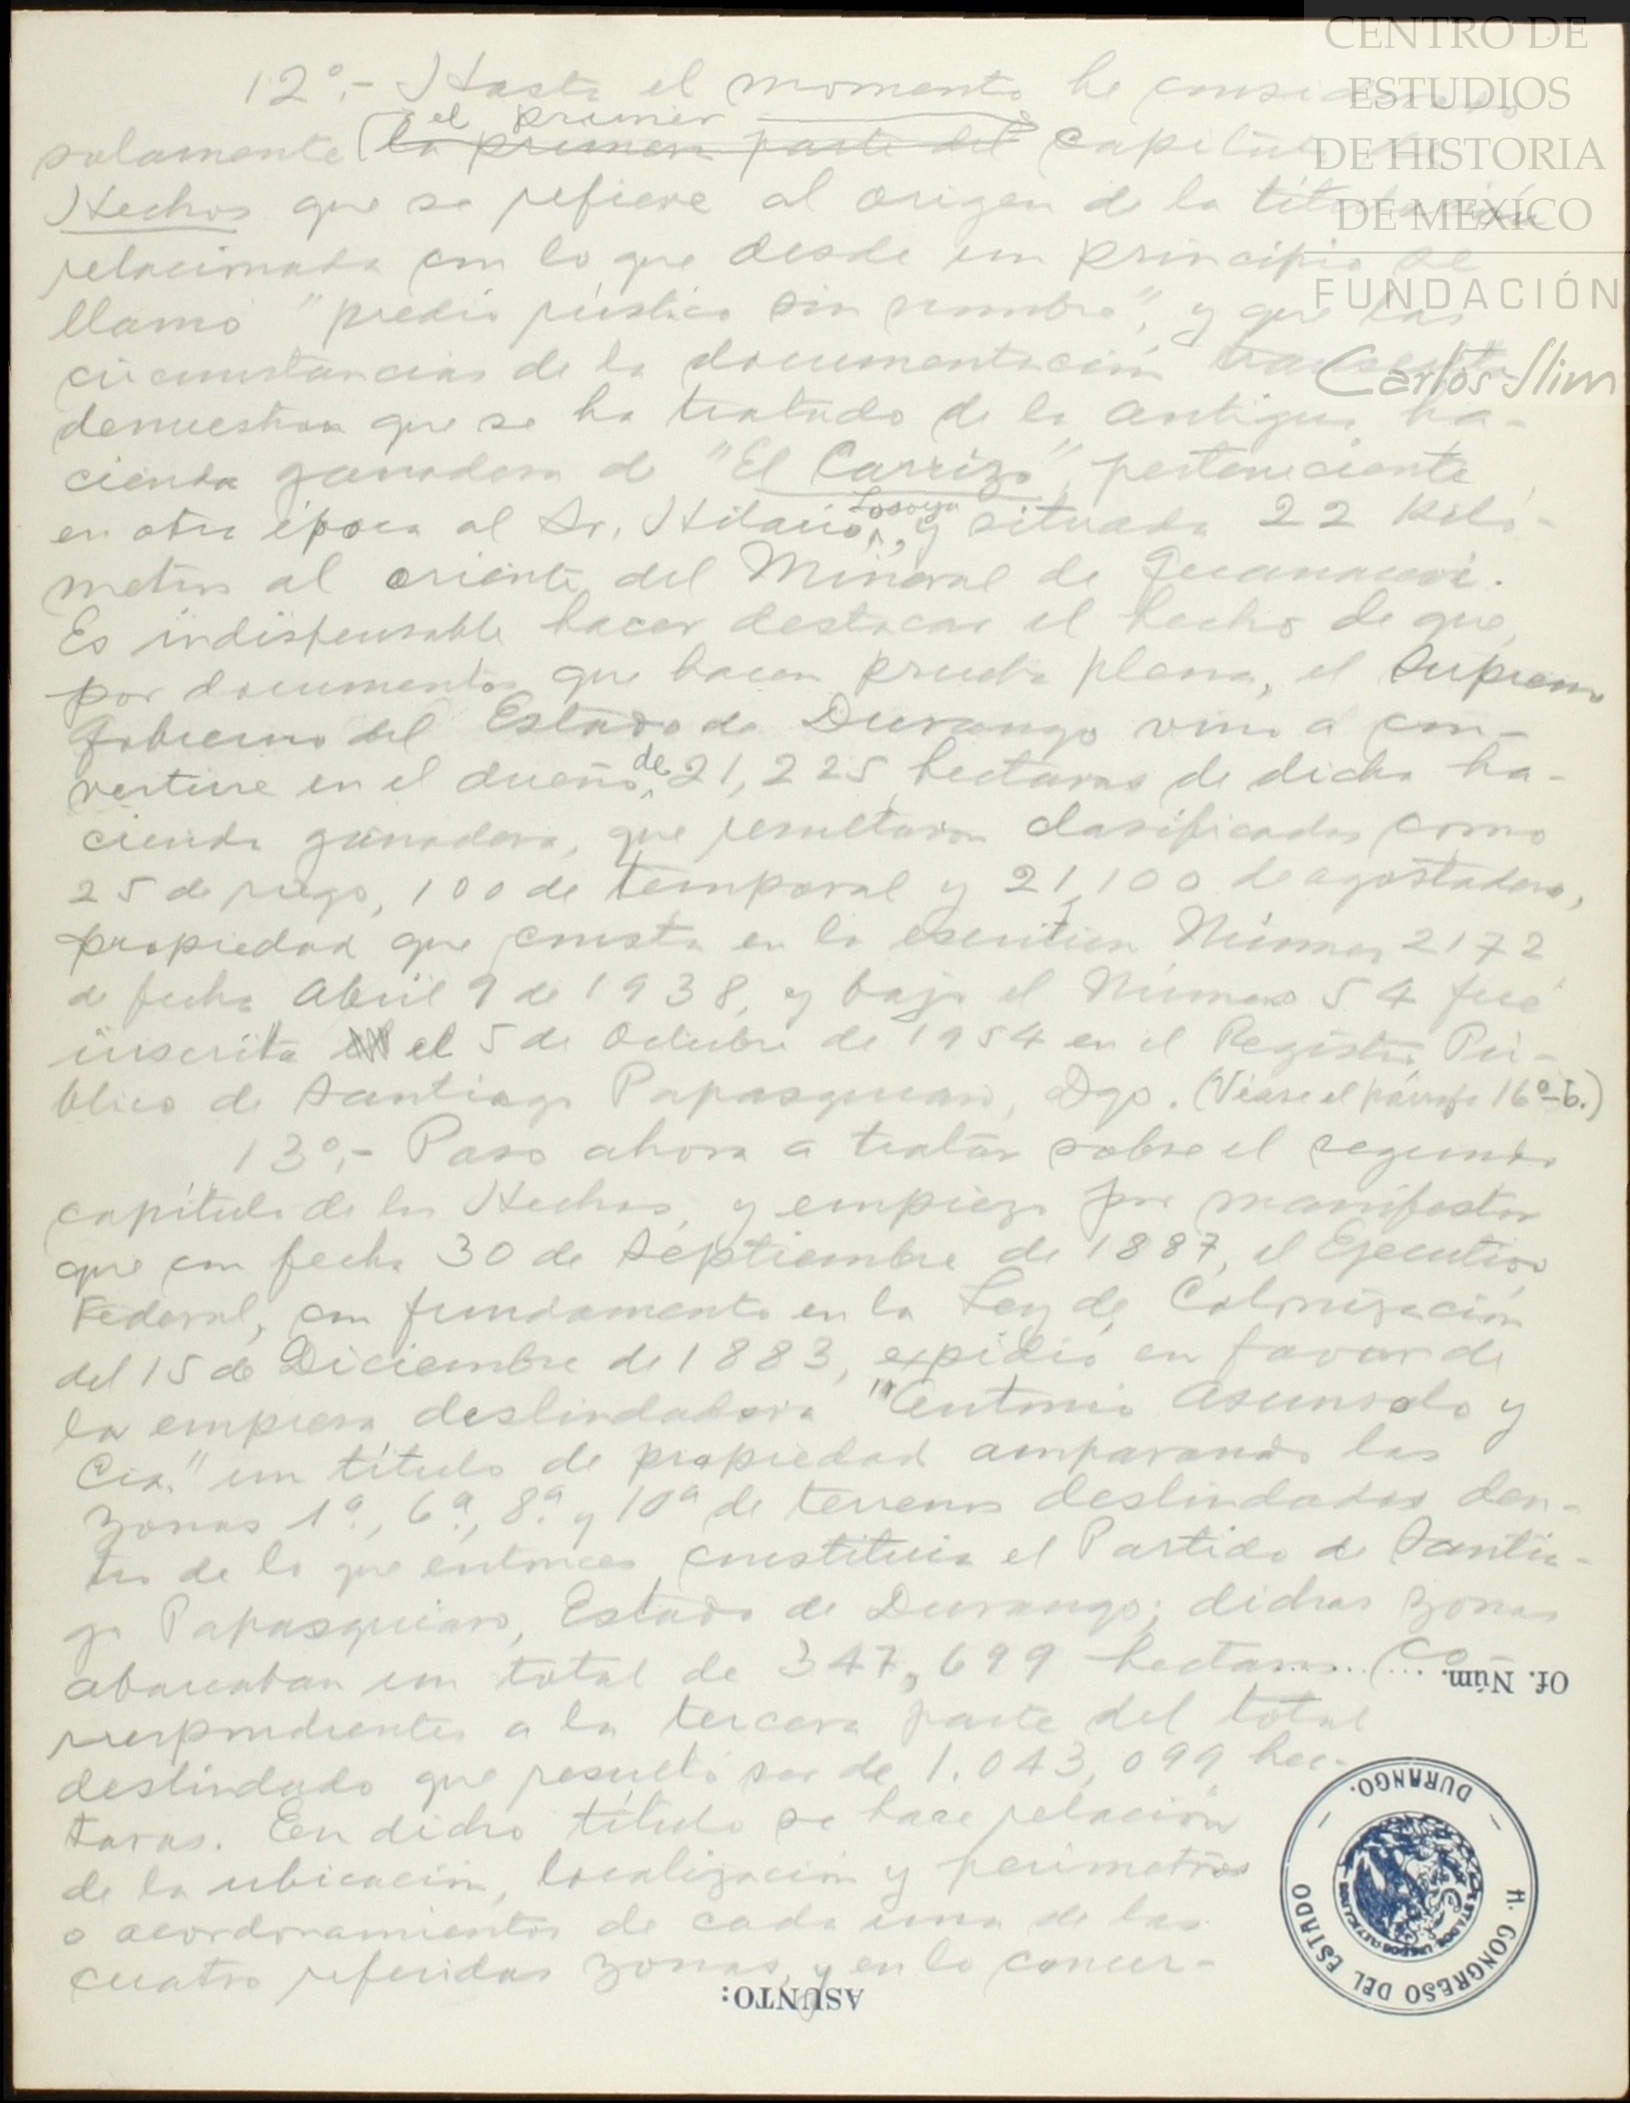 CENTRO DE
ESTUDIOS
DE HISTORIA
DE MÉXICO
FUNDACIÓN
Carlos Slim
12º,- Hasta el momento he considerado
solamente (la primera parte del el primer capítulo de
Hechos que se refiere al origen de la titulación
relacionada con lo que desde un principio se
llamó "predio rústico sin nombre", y que las
circunstancias de la documentación transcrita
demuestran que se ha tratado de la antigua ha-
cienda ganadera de "El Carrizo", perteneciente
en otra época al Sr. Hilario Losoya, y situada 22 kiló-
metros al oriente del Mineral de Guanaceví.
Es indispensable hacer destacar el hecho de que,
por documentos que hacen prueba plena, el Supremo
Gobierno del Estado de Durango vino a con-
vertirse en el dueño de 21,225 hectáreas de dicha ha-
cienda ganadera, que resultaron clasificadas como
25 de riego, 100 de temporal y 21,100 de agostadero,
propiedad que consta en la escritura Número 2172
de fecha Abril 9 de 1938, y bajo el Número 54 fué
inscrita el 5 de Octubre de 1954 en el Registro Pú-
blico de Santiago Papasquiaro, Dgo. (Véase el párrafo 16º-b.)
13º,- Paso ahora a tratar sobre el segundo
capítulo de los Hechos, y empiezo por manifestar
que con fecha 30 de Septiembre de 1887, el Ejecutivo
Federal, con fundamento en la Ley de Colonización
del 15 de Diciembre de 1883, expidió en favor de
la empresa deslindadora "Antonio Asunsolo y
Cía." un título de propiedad amparando las
zonas 1ª, 6ª, 8ª y 10ª de terrenos deslindados den-
tro de lo que entonces constituía el Partido de Santia-
go Papasquiaro, Estado de Durango; dichas zonas
abarcaban un total de 347,699 hectáreas (co-
rrespondientes a la tercera parte del total
deslindado que resultó ser de 1.043,099 hec-
táreas. En dicho título se hace relación
de la ubicación, localización y perímetros
o acordonamientos de cada una de las
cuatro referidas zonas, y en lo concer-
Of. Núm.
ASUNTO:
H. CONGRESO DEL ESTADO
— DURANGO. —
ESTADOS UNIDOS MEXICANOS